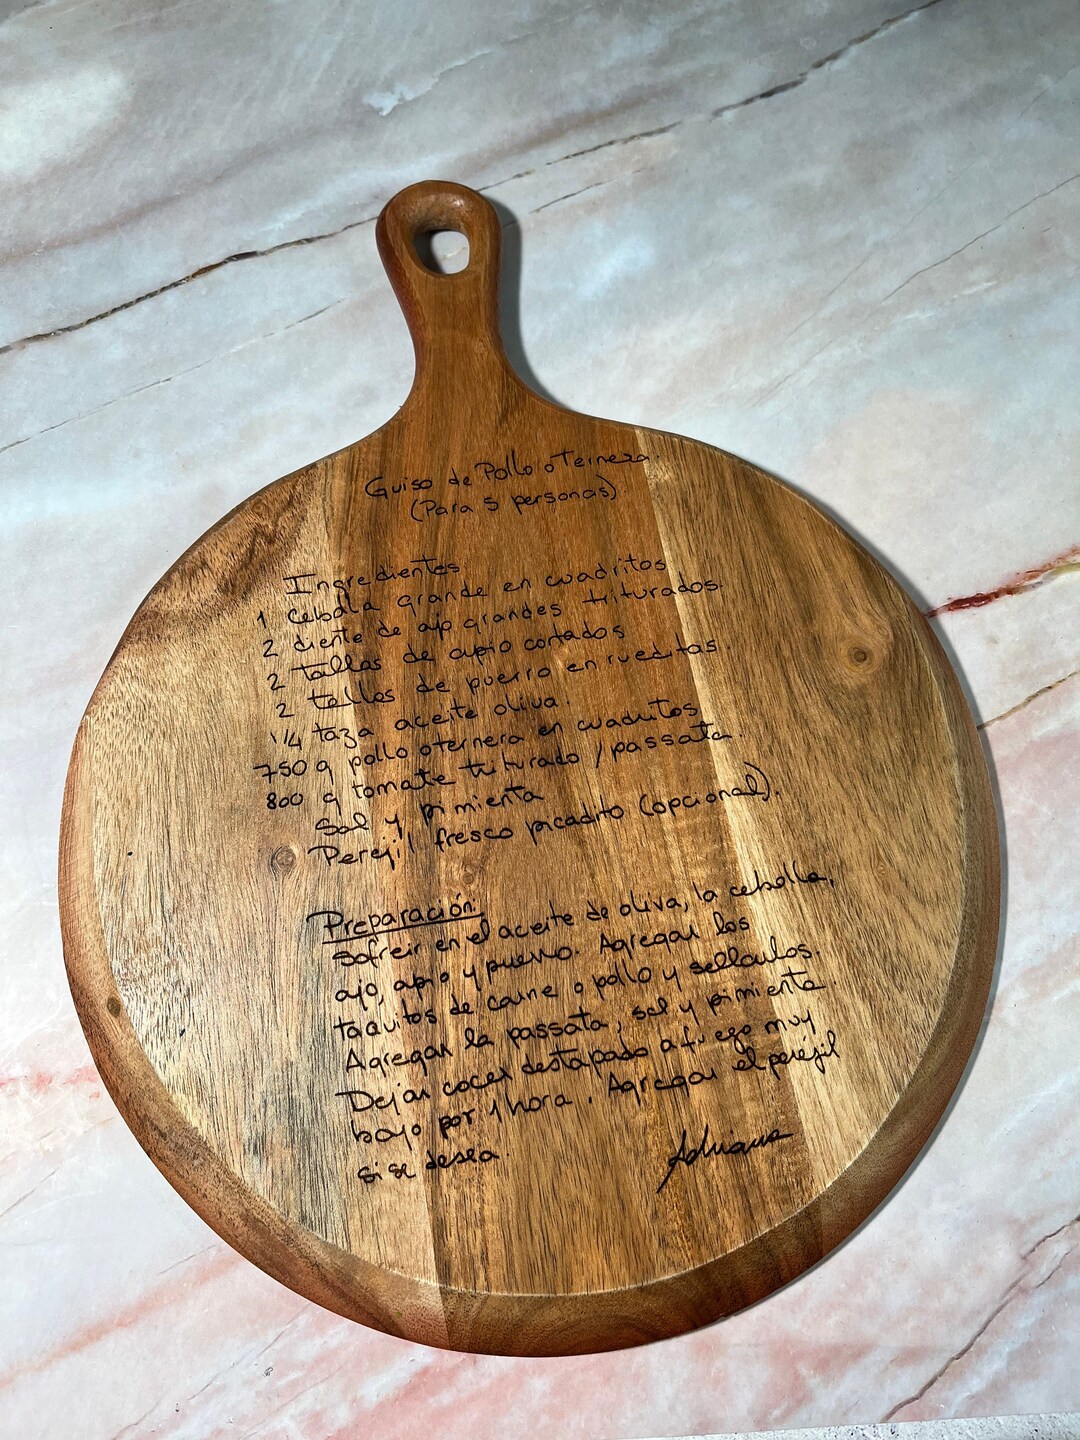 Guiso de Pollo o Ternera.
(Para 5 personas)
Ingredientes
1 cebolla grande en cuadritos
2 diente de ajo grandes triturados.
2 tallas de apio cortados
2 tallos de puerro en rueditas.
1/4 taza aceite oliva.
750 g pollo o ternera en cuadritos
800 g tomate triturado / passata.
Sal y pimienta
Perejil fresco picadito (opcional).
Preparación:
Sofreir en el aceite de oliva, la cebolla,
ajo, apio y puerro. Agregar los
taquitos de carne o pollo y sellarlos.
Agregar la passata, sal y pimienta.
Dejar cocer destapado a fuego muy
bajo por 1 hora. Agregar el peréjil
si se desea.
Adriana